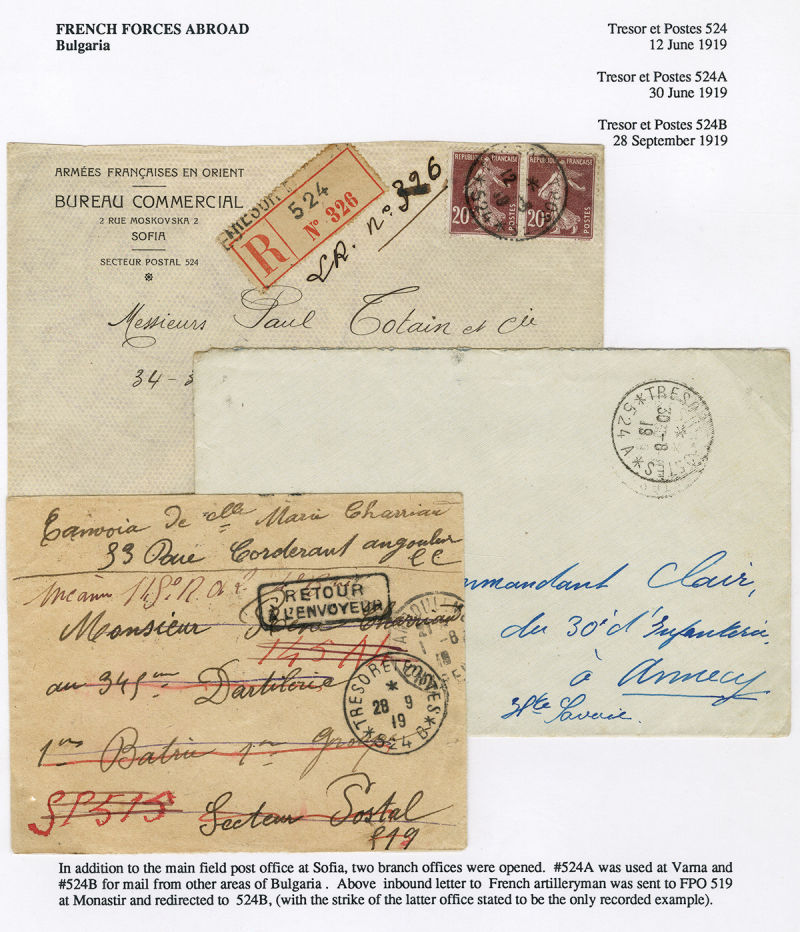 FRENCH FORCES ABROAD
Bulgaria
Tresor et Postes 524
12 June 1919
Tresor et Postes 524A
30 June 1919
Tresor et Postes 524B
28 September 1919
ARMÉES FRANÇAISES EN ORIENT
BUREAU COMMERCIAL
2 RUE MOSKOVSKA 2
SOFIA
SECTEUR POSTAL 524
524
R
N° 326
LR. n° 326
REPUBLIQUE FRANÇAISE
20 POSTES
REPUBLIQUE FRANÇAISE
20 POSTES
Messieurs Paul Totain et Cie
34 -
TRESOR
30 -8
19
*524 A*
Commandant Clair,
du 30e d'Infanterie
à Annecy
Hte Savoie
de Marie Charriau
33 Rue Corderant
RETOUR
A L'ENVOYEUR
Monsieur Charriau
145
au 345 me Dartilerie
TRESOR ET POSTES
28 9
19
*524 B*
Batrie
SP 515
Secteur Postal
519
In addition to the main field post office at Sofia, two branch offices were opened. #524A was used at Varna and
#524B for mail from other areas of Bulgaria . Above inbound letter to French artilleryman was sent to FPO 519
at Monastir and redirected to 524B, (with the strike of the latter office stated to be the only recorded example).